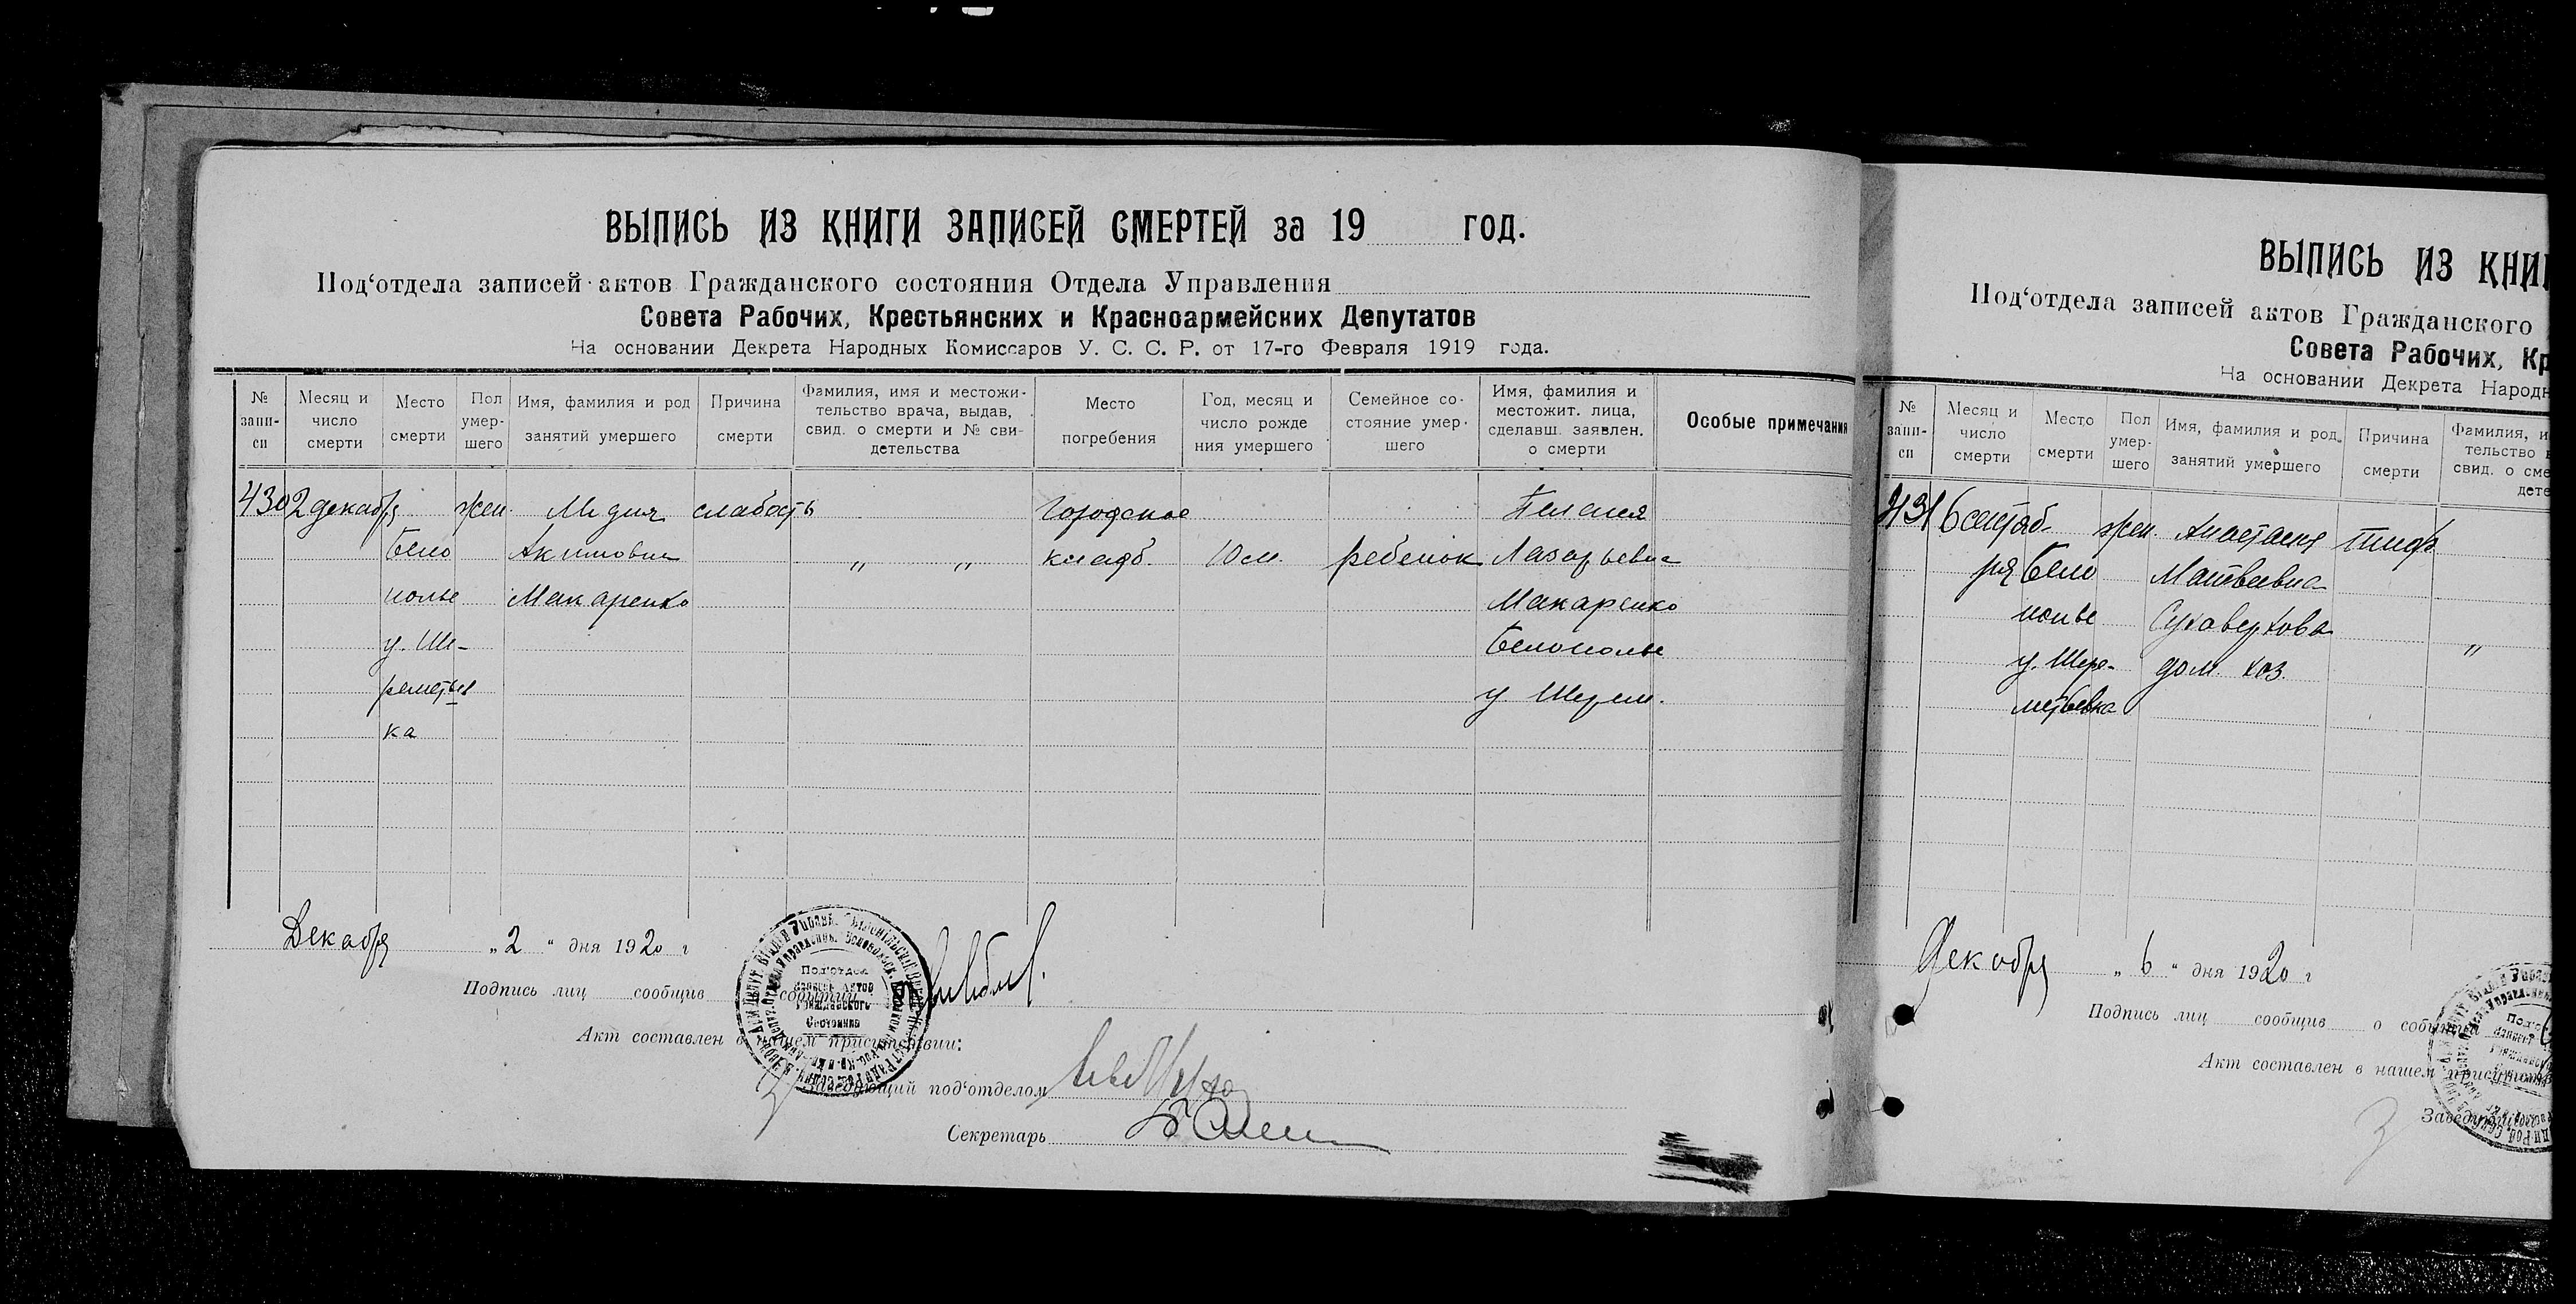 ВЫПИСЬ ИЗ КНИГИ ЗАПИСЕЙ СМЕРТЕЙ за 19 год.
Под‘отдела записей актов Гражданского состояния Отдела Управления
Совета Рабочих, Крестьянских и Красноармейских Депутатов
На основании Декрета Народных Комиссаров У. С. С. Р. от 17-го Февраля 1919 года.
№ запи-си
Месяц и число смерти
Место смерти
Пол умер-шего
Имя, фамилия и род занятий умершего
Причина смерти
Фамилия, имя и местожи-тельство врача, выдав, свид. о смерти и № сви-детельства
Место погребения
Год, месяц и число рожде ния умершего
Семейное со-стояние умер-шего
Имя, фамилия и местожит. лица, сделавш. заявлен. о смерти
Особые примечания
430 2 декабря жен. Лидия слабость Городское Пелагея
Бело Акимовна „ „ кладб. 10 м. ребенок Лазарьевна
полье Макаренко Макаренко
у. Ше- Белополье
реметьев у Шерем.
ка
Декабря „2“ дня 1920 г
Подпись лиц сообщив событии
Под'отдел
записей актов
Гражданского
Состояния
Акт составлен в нашем присутствии:
Заведующий под‘отделом
Секретарь
ВЫПИСЬ ИЗ КНИГ
Под‘отдела записей актов Гражданского
Совета Рабочих, Кр
На основании Декрета Народн
№ запи-си
Месяц и число смерти
Место смерти
Пол умер-шего
Имя, фамилия и род занятий умершего
Причина смерти
Фамилия, и тельство свид. о сме дете
431 6 сентяб- жен. Анастасия тиф
ря Бело Матвеевна
полье Суховерхова „
у. Шере- дом. хоз.
метьевка
Декабря „6“ дня 1920 г
Подпись лиц сообщив о событии
Акт составлен в нашем присутств
Заведующий